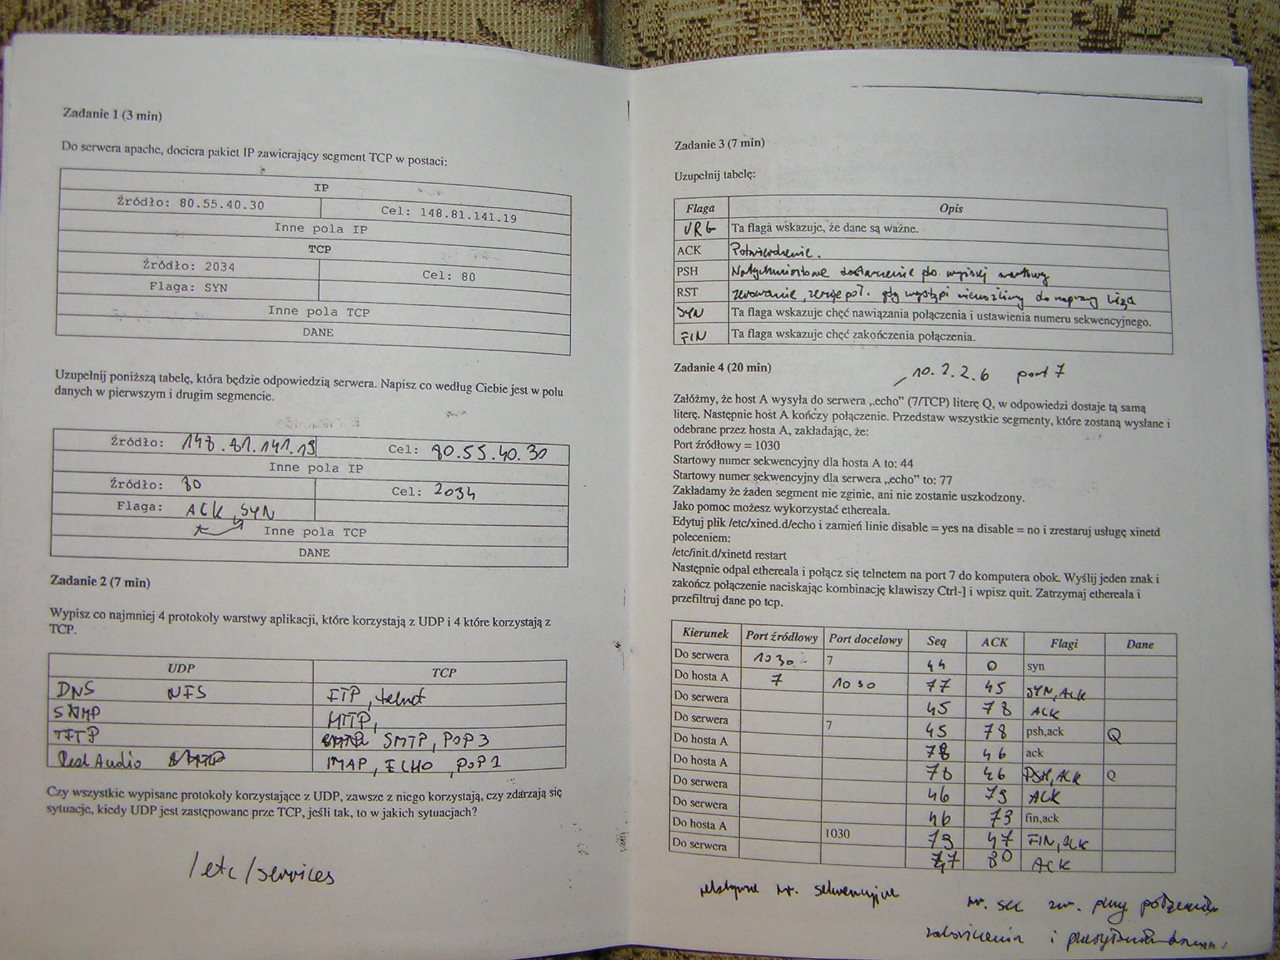 Zadanie 1 (3 min)
Do serwera apache, dociera pakiet IP zawierający segment TCP w postaci:
IP
Źródło: 80.55.40.30 Cel: 148.81.141.19
Inne pola IP
TCP
Źródło: 2034 Cel: 80
Flaga: SYN
Inne pola TCP
DANE
Uzupełnij poniższą tabelę, która będzie odpowiedzią serwera. Napisz co według Ciebie jest w polu
danych w pierwszym i drugim segmencie.
Źródło: 148.81.141.19 Cel: 80.55.40.30
Inne pola IP
Źródło: 80 Cel: 2034
Flaga: ACK, SYN
Inne pola TCP
DANE
Zadanie 2 (7 min)
Wypisz co najmniej 4 protokoły warstwy aplikacji, które korzystają z UDP i 4 które korzystają z
TCP.
UDP TCP
DNS NFS FTP, telnet
SNMP HTTP,
TFTP SMTP, POP3
Real Audio IMAP, ECHO, POP2
Czy wszystkie wypisane protokoły korzystające z UDP, zawsze z niego korzystają, czy zdarzają się
sytuacje, kiedy UDP jest zastępowane prze TCP, jeśli tak, to w jakich sytuacjach?
/etc/services
Zadanie 3 (7 min)
Uzupełnij tabelę:
Flaga Opis
URG Ta flaga wskazuje, że dane są ważne.
ACK Potwierdzenie.
PSH Natychmiastowe dostarczenie do wyższej warstwy
RST zerowanie, zeruje poł. gdy wystąpi niemożliwy do naprawy błąd
SYN Ta flaga wskazuje chęć nawiązania połączenia i ustawienia numeru sekwencyjnego.
FIN Ta flaga wskazuje chęć zakończenia połączenia.
Zadanie 4 (20 min)
10.2.2.6 port 7
Załóżmy, że host A wysyła do serwera „echo” (7/TCP) literę Q, w odpowiedzi dostaje tą samą
literę. Następnie host A kończy połączenie. Przedstaw wszystkie segmenty, które zostaną wysłane i
odebrane przez hosta A, zakładając, że:
Port źródłowy = 1030
Startowy numer sekwencyjny dla hosta A to: 44
Startowy numer sekwencyjny dla serwera „echo” to: 77
Zakładamy że żaden segment nie zginie, ani nie zostanie uszkodzony.
Jako pomoc możesz wykorzystać ethereala.
Edytuj plik /etc/xined.d/echo i zamień linie disable = yes na disable = no i zrestaruj usługę xinetd
poleceniem:
/etc/init.d/xinetd restart
Następnie odpal ethereala i połącz się telnetem na port 7 do komputera obok. Wyślij jeden znak i
zakończ połączenie naciskając kombinację klawiszy Ctrl-] i wpisz quit. Zatrzymaj ethereala i
przefiltruj dane po tcp.
Kierunek Port źródłowy Port docelowy Seq ACK Flagi Dane
Do serwera 1030 7 44 0 syn
Do hosta A 7 1030 77 45 SYN, ACK
Do serwera 45 78 ACK
Do serwera 7 45 78 psh,ack Q
Do hosta A 78 46 ack
Do hosta A 78 46 PSH, ACK Q
Do serwera 46 79 ACK
Do serwera 46 79 fin,ack
Do hosta A 1030 79 47 FIN, ACK
Do serwera 47 80 ACK
relatywne nr. sekwencyjne
nr. sec zw. przy połączeniu
zakończenia i przesyłaniu danych